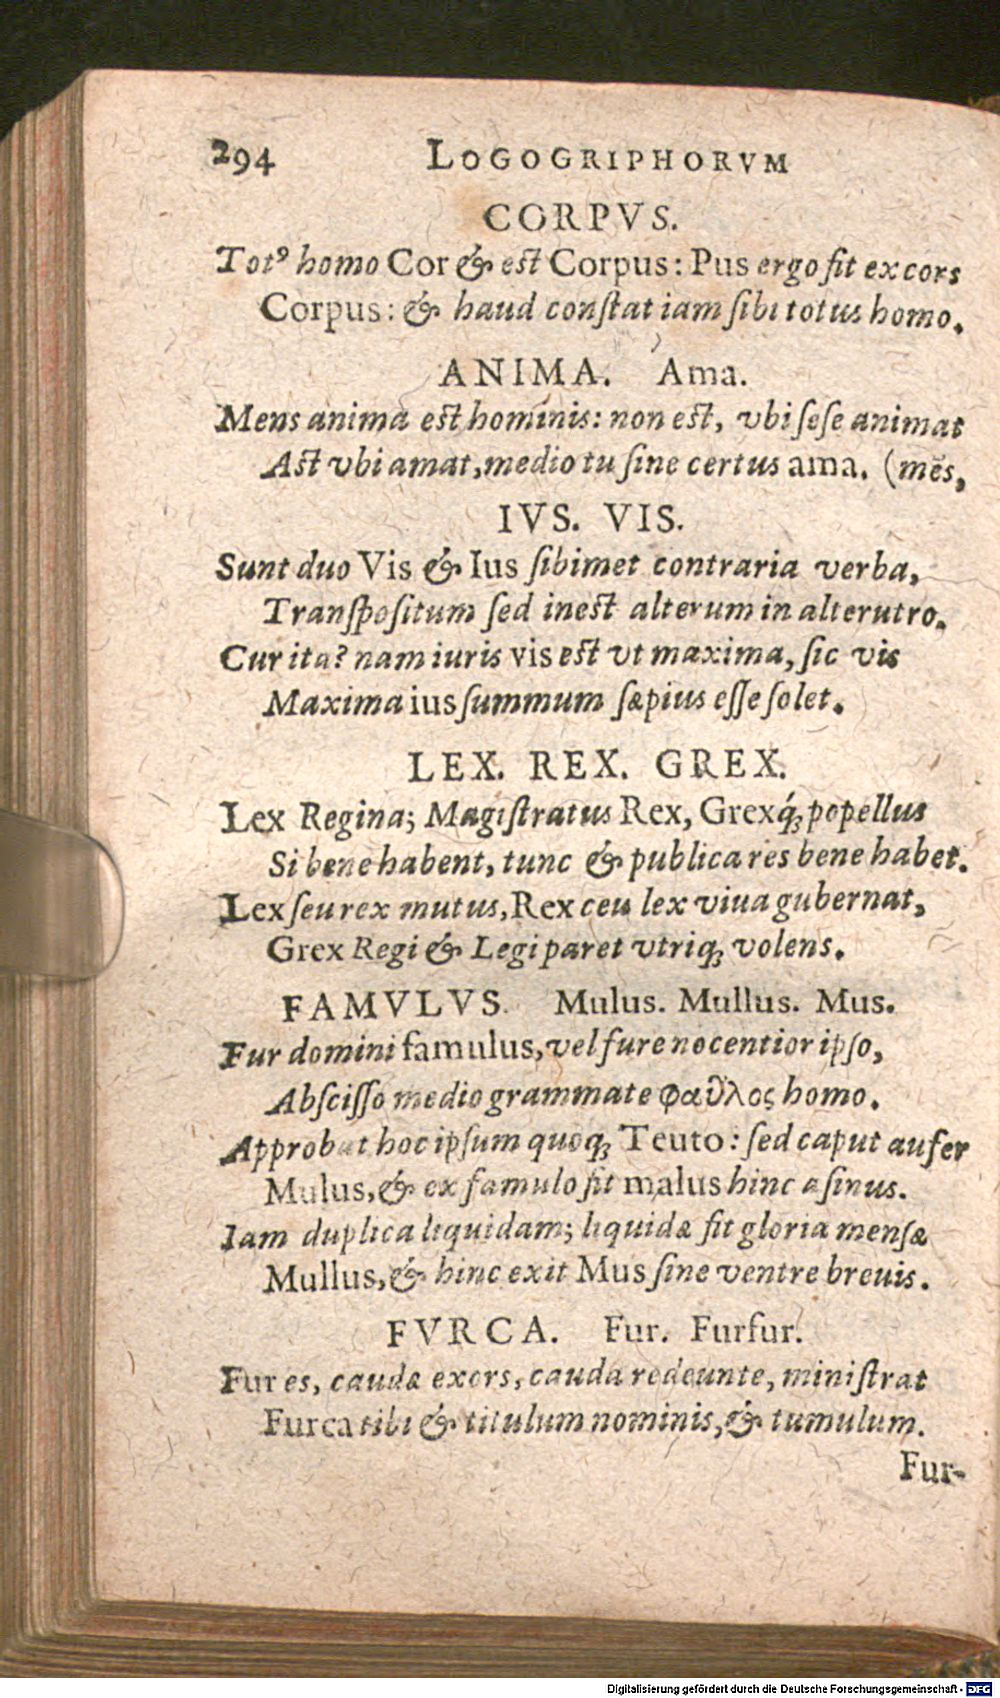 294 LOGOGRIPHORVM
CORPVS.
Totꝰ homo Cor & est Corpus: Pus ergo fit excors
Corpus: & haud conſtat iam ſibi totus homo.
ANIMA. Ama.
Mens anima est hominis: non est, vbi ſeſe animat
Ast vbi amat, medio tu ſine certus ama. (mēs,
IVS. VIS.
Sunt duo Vis & Ius ſibimet contraria verba,
Tranſpoſitum ſed inest alterum in alterutro.
Cur ita? nam iuris vis est vt maxima, ſic vis
Maxima ius ſummum ſæpius eſſe ſolet.
LEX. REX. GREX.
Lex Regina; Magiſtratus Rex, Grexq́; popellus
Si bene habent, tunc & publica res bene habet.
Lex ſeu rex mutus, Rex ceu lex viua gubernat,
Grex Regi & Legi paret vtriq; volens.
FAMVLVS. Mulus. Mullus. Mus.
Fur domini famulus, vel fure nocentior ipſo,
Abſciſſo medio grammate φαῦλος homo.
Approbat hoc ipſum quoq; Teuto: ſed caput aufer
Mulus, & ex famulo fit malus hinc aſinus.
Iam duplica liquidam; liquidæ fit gloria menſæ
Mullus, & hinc exit Mus ſine ventre breuis.
FVRCA. Fur. Furfur.
Fur es, caudæ exors, cauda redeunte, miniſtrat
Furca tibi & titulum nominis, & tumulum.
Fur-
Digitalisierung gefördert durch die Deutsche Forschungsgemeinschaft - DFG